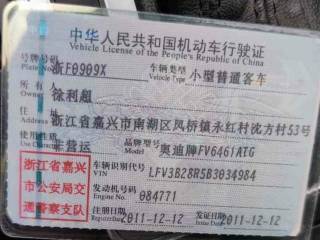 中华人民共和国机动车行驶证
Vehicle License of the People's Republic of China
号牌号码 浙F0909X 车辆类型 小型普通客车
Plate No. Vehicle Type
所有人 徐利超
住址 浙江省嘉兴市南湖区凤桥镇永红村沈方村53号
使用性质 非营运 品牌型号 奥迪牌FV6461ATG
Use Character
浙江省嘉兴市公安局交通警察支队
车辆识别代号 LFV3B28R5B3034984
VIN
发动机号码 084771
Engine No.
注册日期 2011-12-12 发证日期 2011-12-12
Register Date Issue Date